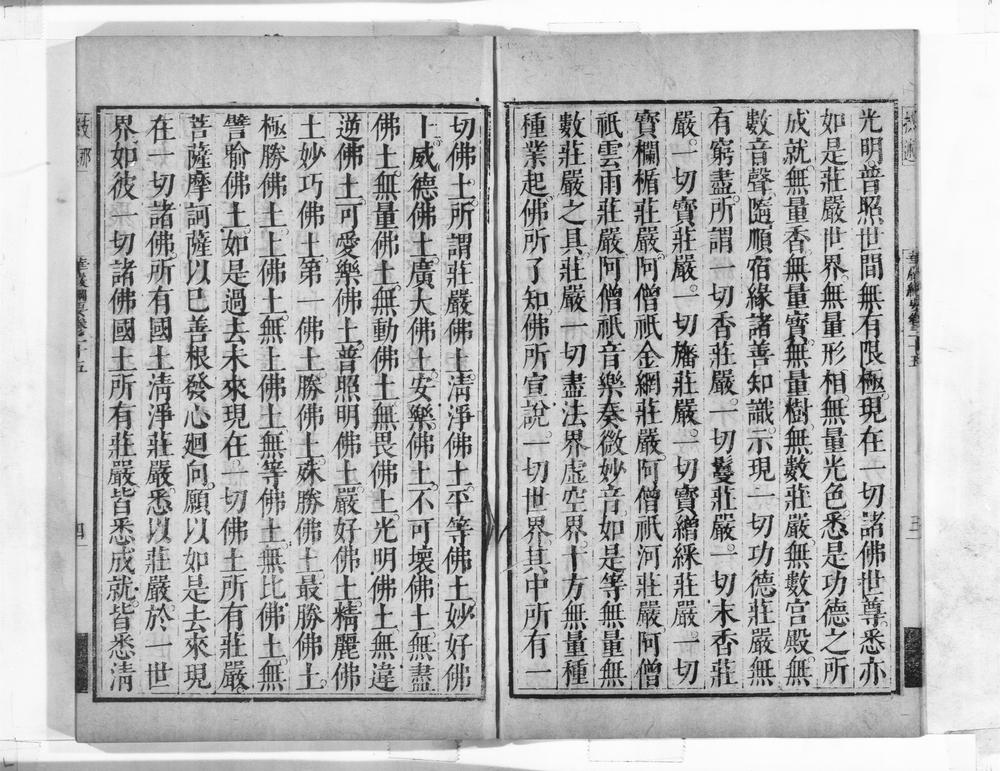 光明普照世間無有限極現在一切諸佛世尊悉亦
如是莊嚴世界無量形相無量光色悉是功德之所
成就無量香無量寶無量樹無數莊嚴無數宫殿無
數音聲隨順宿緣諸善知識示現一切功德莊嚴無
有窮盡所謂一切香莊嚴一切鬘莊嚴一切末香莊
嚴一切寶莊嚴一切旛莊嚴一切寶繒綵莊嚴一切
寶欄楯莊嚴阿僧祇金網莊嚴阿僧祇河莊嚴阿僧
祇雲雨莊嚴阿僧祇音樂奏微妙音如是等無量無
數莊嚴之具莊嚴一切盡法界虛空界十方無量種
種業起佛所了知佛所宣說一切世界其中所有一
華嚴綱要卷二十五
三
切佛土所謂莊嚴佛土淸淨佛土平等佛土妙好佛
土威德佛土廣大佛土安樂佛土不可壞佛土無盡
佛土無量佛土無動佛土無畏佛土光明佛土無違
逆佛土可愛樂佛土普照明佛土嚴好佛土精麗佛
土妙巧佛土第一佛土勝佛土殊勝佛土最勝佛土
極勝佛土上佛土無上佛土無等佛土無比佛土無
譬喻佛土如是過去未來現在一切佛土所有莊嚴
菩薩摩訶薩以己善根發心廻向願以如是去來現
在一切諸佛所有國土淸淨莊嚴悉以莊嚴於一世
界如彼一切諸佛國土所有莊嚴皆悉成就皆悉淸
華嚴綱要卷二十五
四